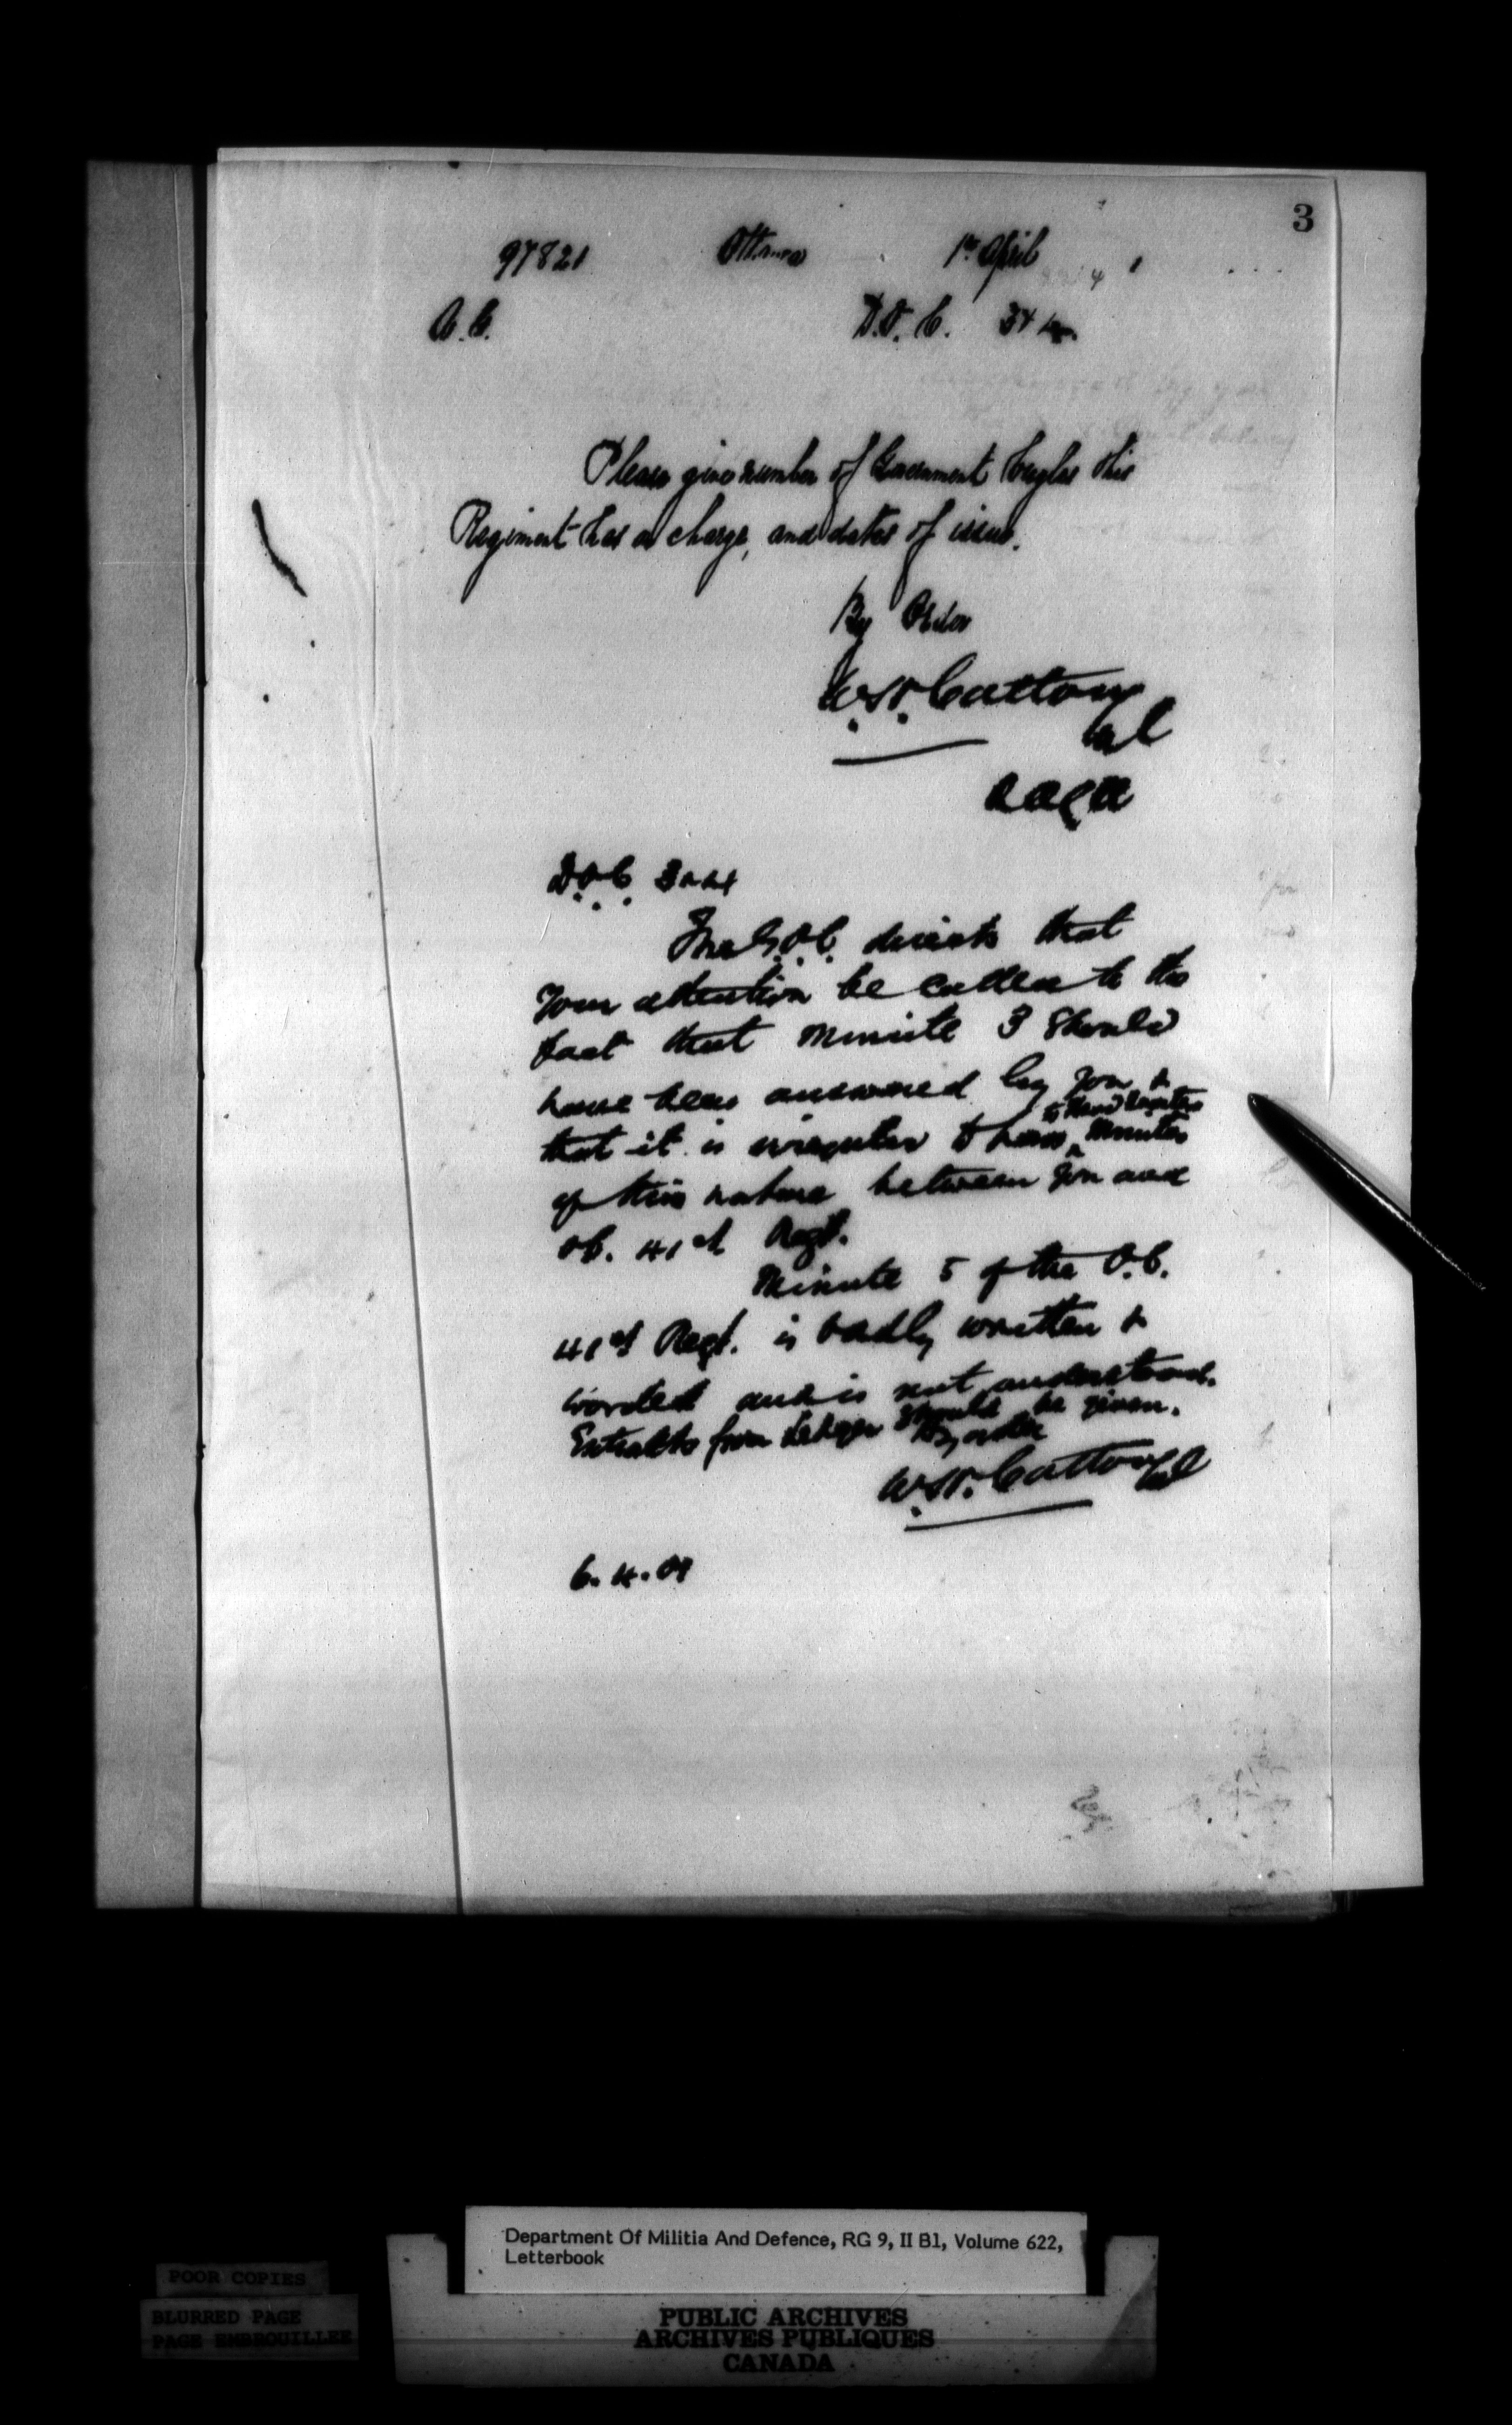 3
97821 Ottawa 1st April 1
D.O.C. 3 & 4
Please give number of Government Bugles this
Regiment has on charge, and dates of issue.
By Order
W.H. Cotton
Col
D.O.C. 3 & 4
The G.O.C. directs that
your attention be called to the
fact that Minute 3 should
have been answered by you &
that it is irregular to have Minutes
of this nature between you and
OC. 41st Regt.
Minute 5 of the O.C.
41st Regt. is badly written &
worded and is not understood.
Extracts from Ledger should be given.
By order
W.H. Cotton Col
6.4.01
Department Of Militia And Defence, RG 9, II B1, Volume 622,
Letterbook
POOR COPIES
BLURRED PAGE
PAGE EMBROUILLEE
PUBLIC ARCHIVES
ARCHIVES PUBLIQUES
CANADA